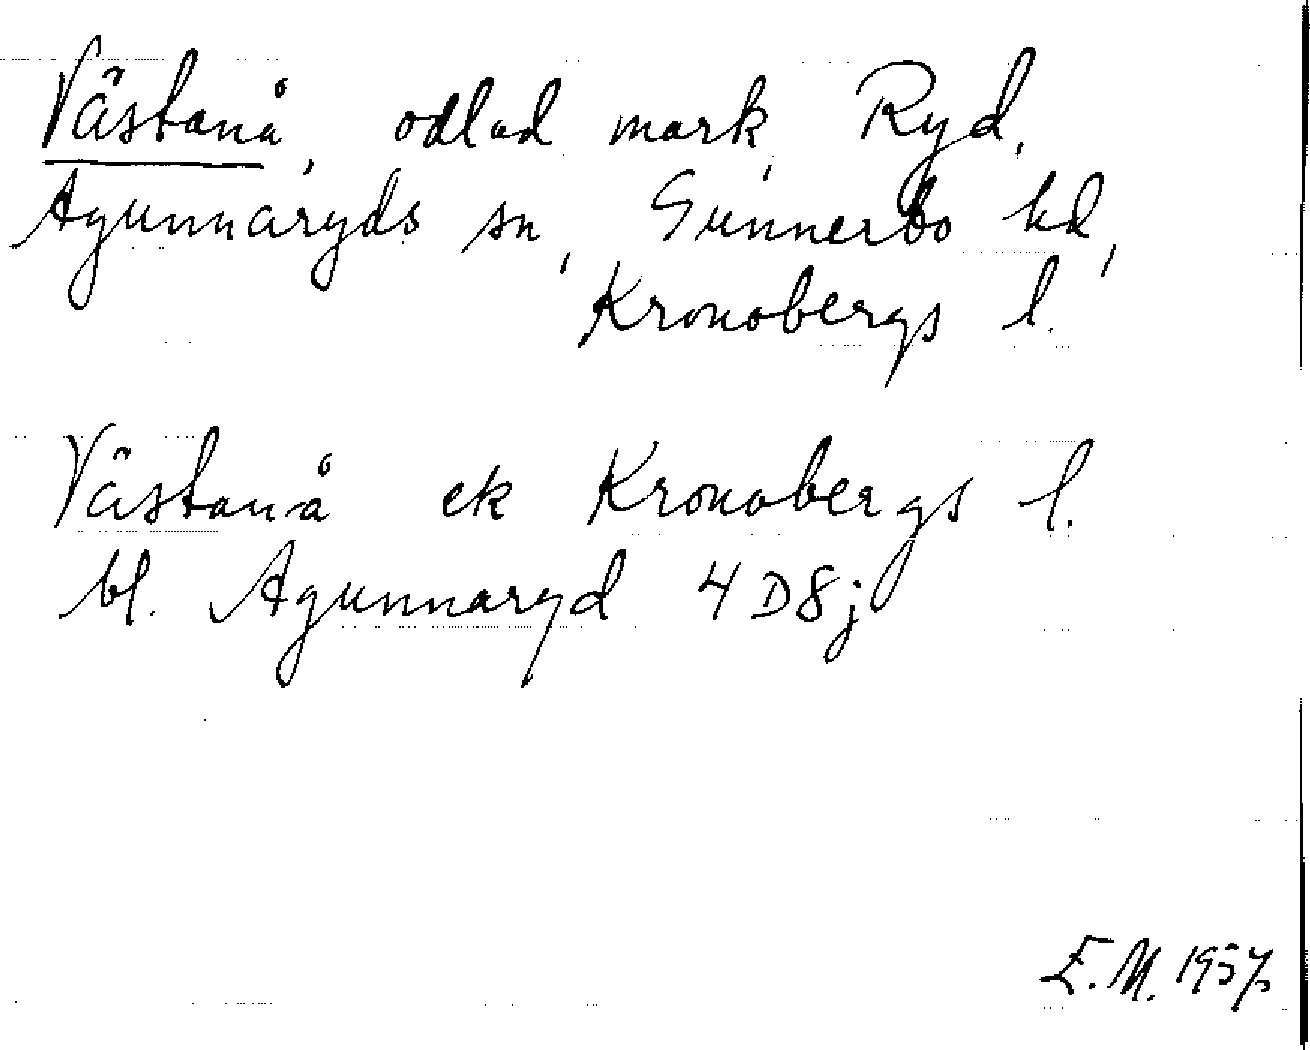 Västanå, odlad mark, Ryd,
Agunnaryds sn, Sunnerbo hd,
Kronobergs l.
Västanå ek Kronobergs l.
bl. Agunnaryd 4 D 8 j
E.M. 1957